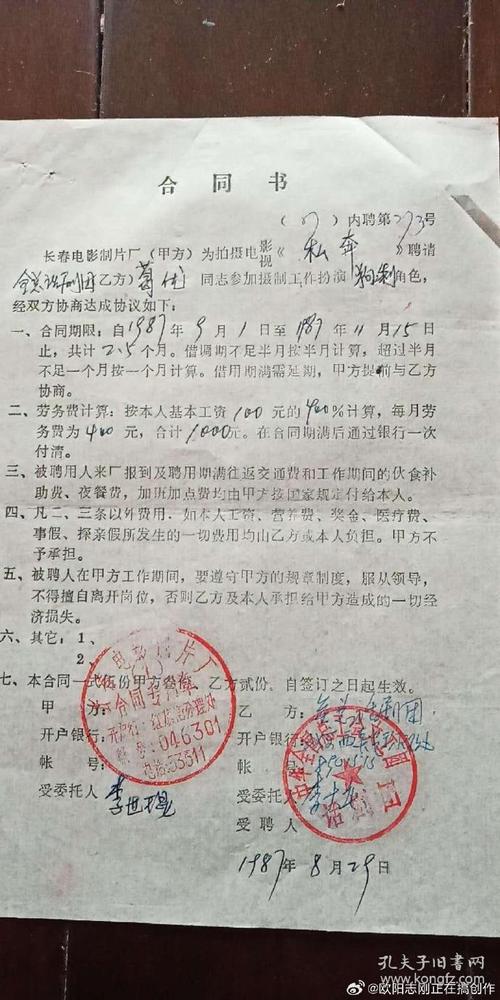 合同书
(87)内聘第273号
长春电影制片厂（甲方）为拍摄电影视《私奔》聘请
全总话剧团（乙方）葛优 同志参加摄制工作扮演 角色，
经双方协商达成协议如下：
一、合同期限：自1987年9月1日至1987年11月15日
止，共计2.5个月。借调期不足半月按半月计算，超过半月
不足一个月按一个月计算。借用期满需延期，甲方提前与乙方
协商。
二、劳务费计算：按本人基本工资100元的400%计算，每月劳
务费为400元，合计1000元。在合同期满后通过银行一次
付清。
三、被聘用人来厂报到及聘用期满往返交通费和工作期间的伙食补
助费、夜餐费，加班加点费均由甲方按国家规定付给本人。
四、凡二、三条以外费用，如本人工资、营养费、奖金、医疗费、
事假、探亲假所发生的一切费用均由乙方或本人负担。甲方不
予承担。
五、被聘人在甲方工作期间，要遵守甲方的规章制度，服从领导，
不得擅自离开岗位，否则乙方及本人承担给甲方造成的一切经
济损失。
六、其它：1、
2、
七、本合同一式伍份甲方叁份，乙方贰份，自签订之日起生效。
甲 方：
乙 方：全总话剧团
开户银行：
开户银行：
帐 号：
帐 号：
受委托人
受委托人
受聘人
电影制片厂
合同专用章
046301
电话53311
话剧团
1987年8月29日
孔夫子旧书网
kongfz.com
@欧阳志刚正在搞创作